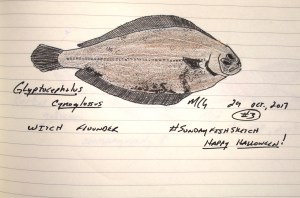 Glyptocephalus
Cynoglossus
MCH 29 Oct, 2017
#3
Witch Flounder
#SundayFishSketch
Happy Halloween!